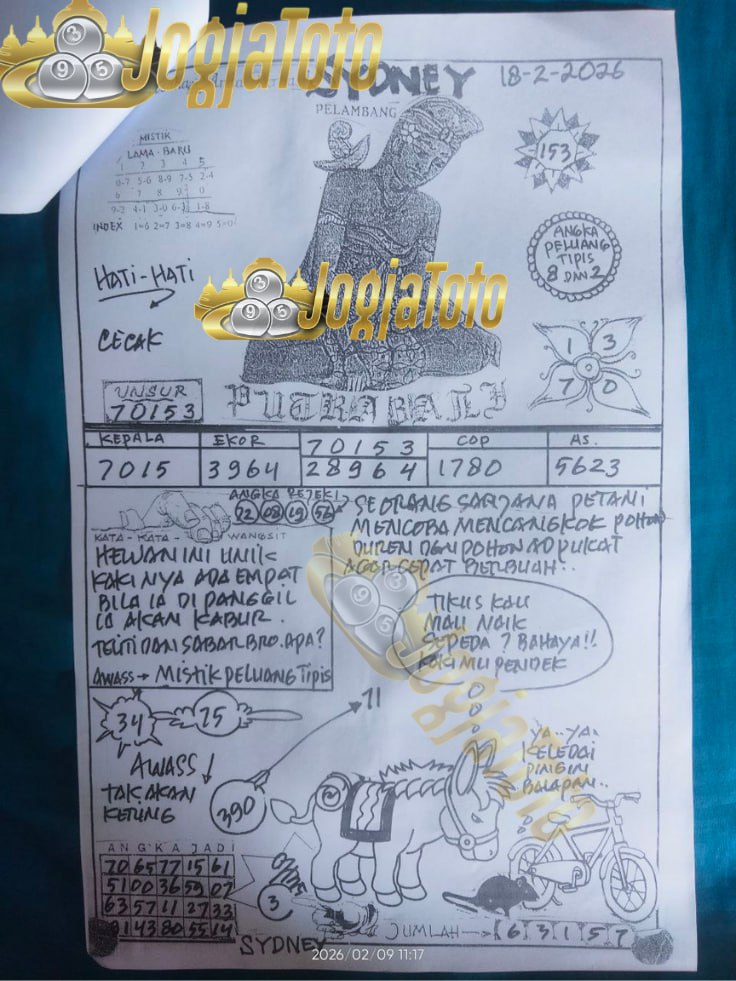 JogjaToto
3
9 5
SYDNEY
18-2-2026
PELAMBANG
MISTIK
LAMA - BARU
1 2 3 4 5
0-7 5-6 8-9 7-5 2-4
6 7 8 9 0
INDEX 1=6 2=7 3=8 4=9 5=0
153
ANGKA
PELUANG
TIPIS
8 DAN 2
HATI-HATI
JogjaToto
3
9 5
CECAK
1 3
7 0
UNSUR
70153
PUTRA BALI
KEPALA EKOR 70153 COP AS.
7015 3964 28964 1780 5623
ANGKA REJEKI
22 08 19 56
KATA - KATA - WANGSIT
HEWAN INI UNIK
KAKI NYA ADA EMPAT
BILA IA DI PANGGIL
IA AKAN KABUR.
TELITI DAN SABAR BRO. APA?
AWASS → MISTIK PELUANG TIPIS
SEORANG SARJANA PETANI
MENCOBA MENCANGKOK POHON
DUREN DGN POHON ADPUKAT
AGAR CEPAT BERBUAH..
TIKUS KAU
MAU NAIK
SEPEDA ? BAHAYA!!
KAKI MU PENDEK
JogjaToto
3
9 5
34 75
71
AWASS
TAK AKAN
KETUNG
390
YA..YA.
KELEDAI
PINGIN
BALAPAN..
ANGKA JADI
70 65 77 15 61
51 00 36 59 07
63 57 11 27 33
91 43 80 55 14
3
JUMLAH → 6 3 1 5 7
SYDNEY
2026/02/09 11:17